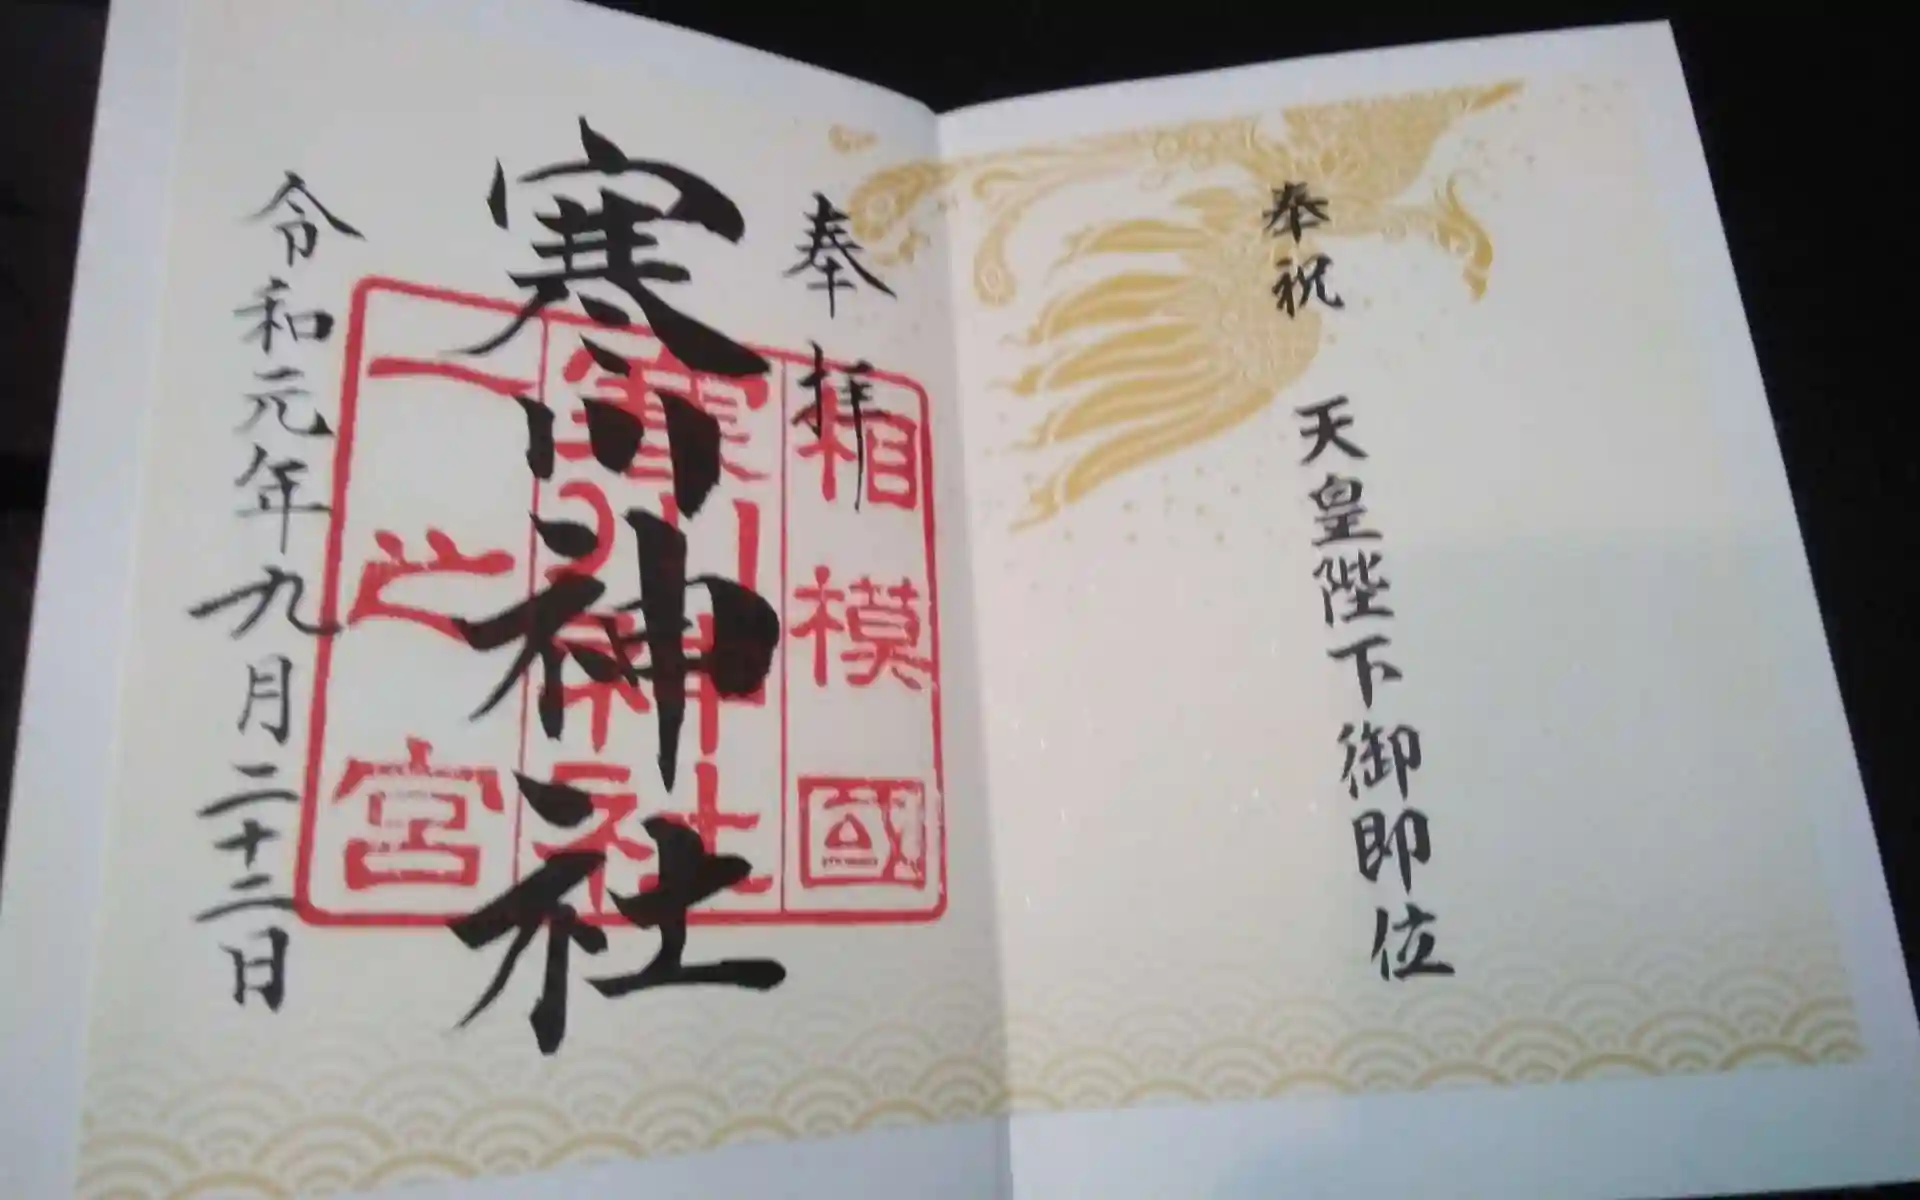 奉祝 天皇陛下御即位
奉拝
寒川神社
令和元年九月二十二日
相模國
寒川神社
一之宮